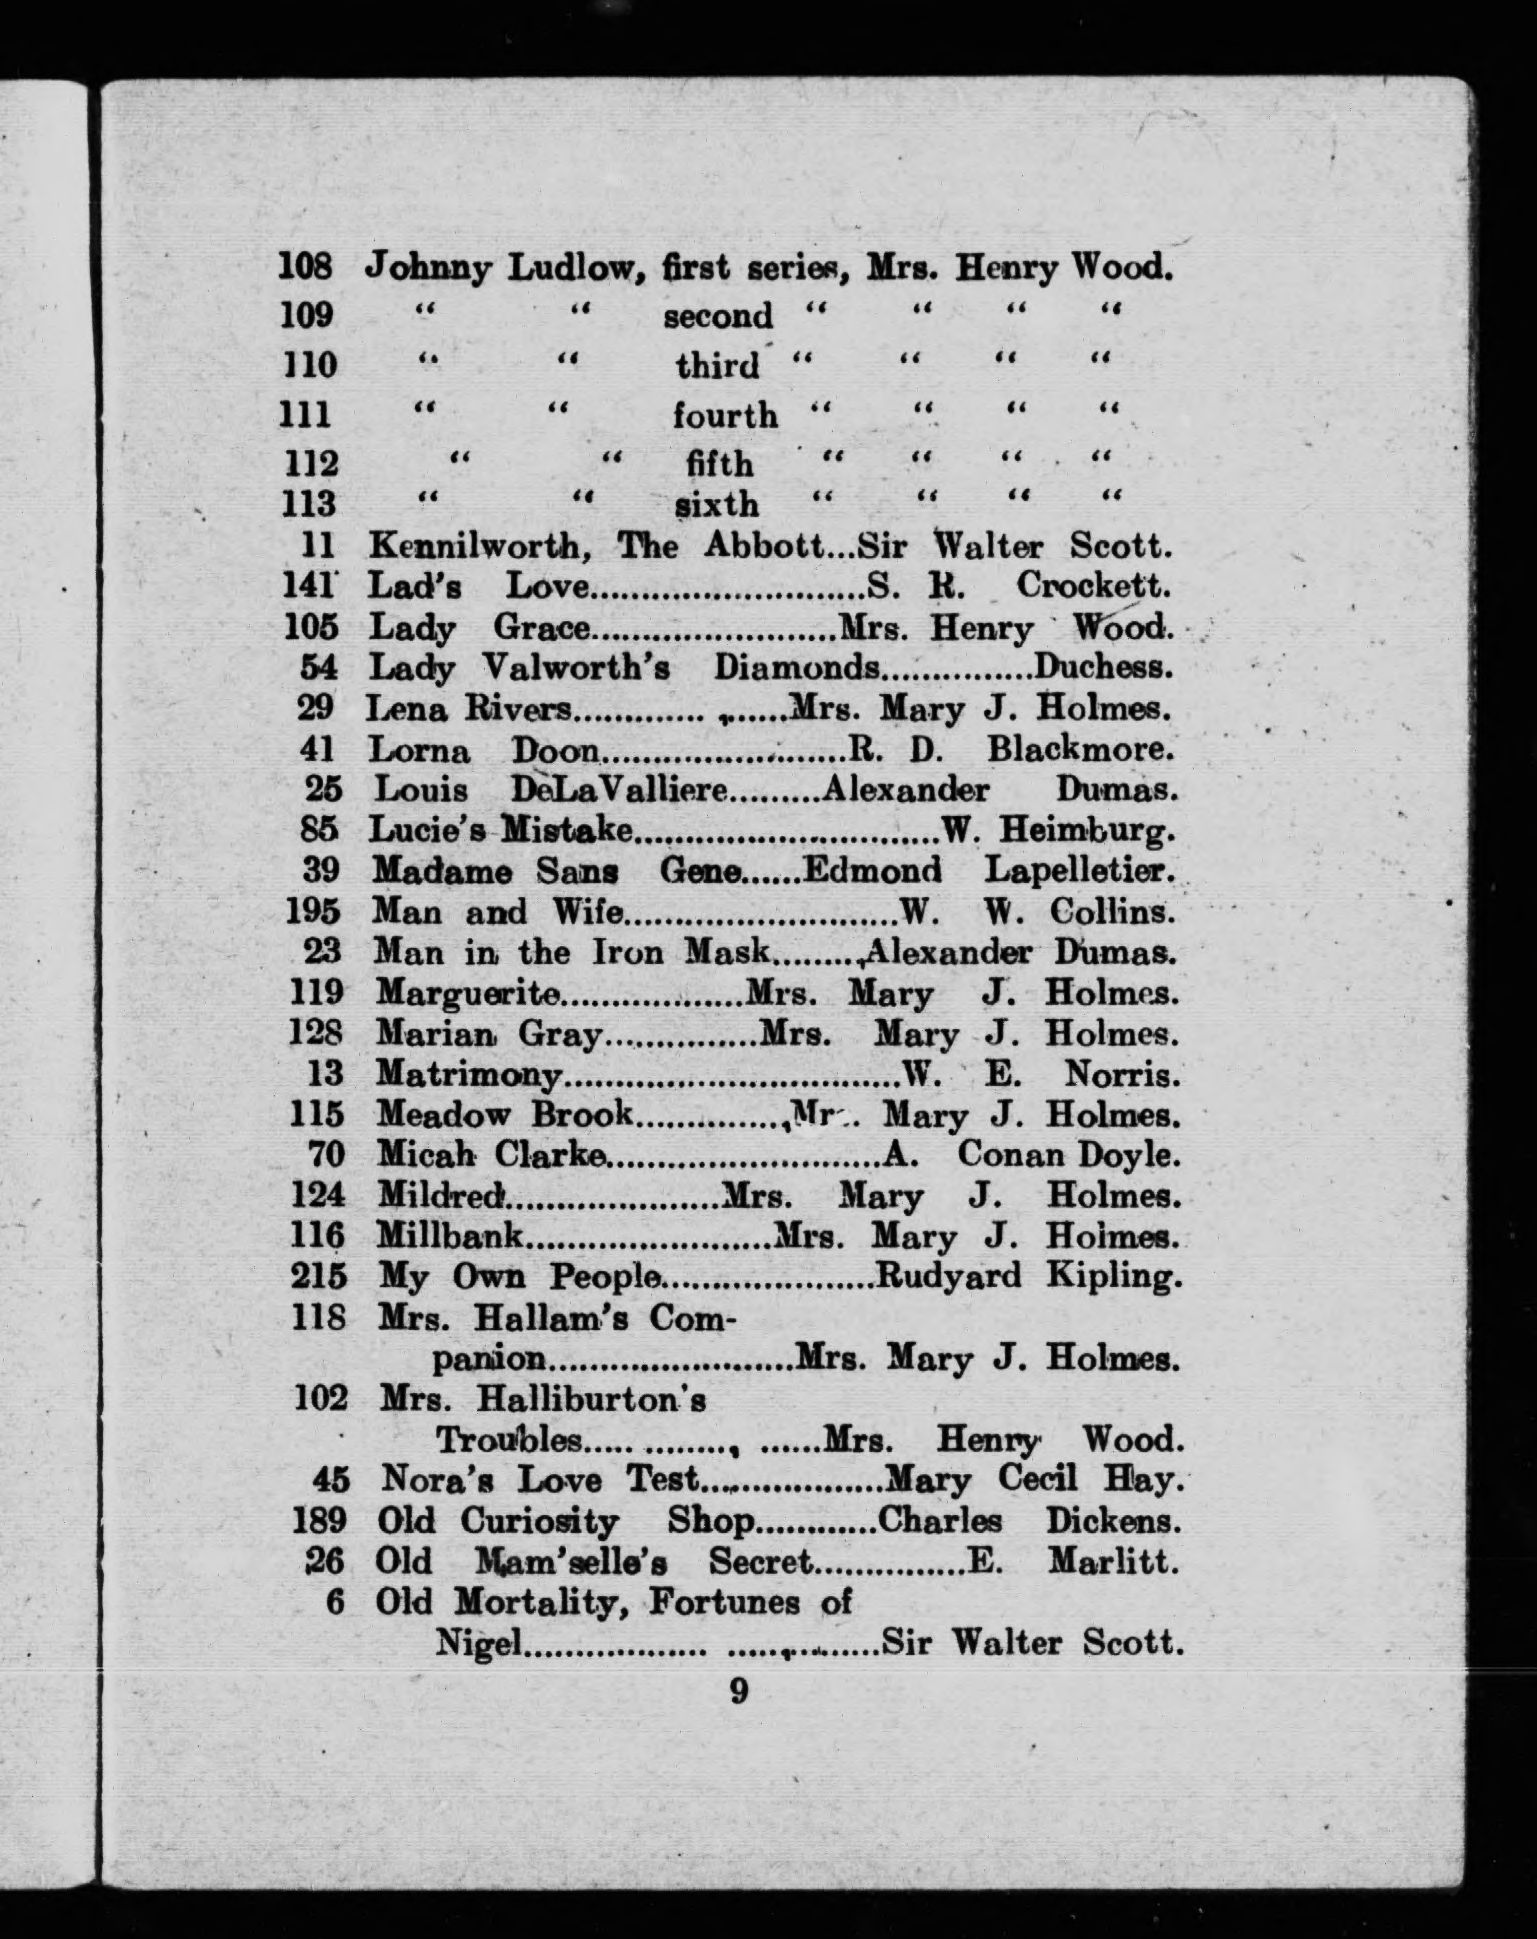 108 Johnny Ludlow, first series, Mrs. Henry Wood.
109 “ “ second “ “ “ “
110 “ “ third “ “ “ “
111 “ “ fourth “ “ “ “
112 “ “ fifth “ “ “ “
113 “ “ sixth “ “ “ “
11 Kennilworth, The Abbott...Sir Walter Scott.
141 Lad's Love...........................S. R. Crockett.
105 Lady Grace........................Mrs. Henry Wood.
54 Lady Valworth's Diamonds...............Duchess.
29 Lena Rivers............. ,......Mrs. Mary J. Holmes.
41 Lorna Doon........................R. D. Blackmore.
25 Louis DeLaValliere.........Alexander Dumas.
85 Lucie's Mistake..............................W. Heimburg.
39 Madame Sans Gene......Edmond Lapelletier.
195 Man and Wife...........................W. W. Collins.
23 Man in the Iron Mask........,Alexander Dumas.
119 Marguerite..................Mrs. Mary J. Holmes.
128 Marian Gray...............Mrs. Mary J. Holmes.
13 Matrimony.................................W. E. Norris.
115 Meadow Brook..............,Mrs. Mary J. Holmes.
70 Micah Clarke...........................A. Conan Doyle.
124 Mildred.....................Mrs. Mary J. Holmes.
116 Millbank........................Mrs. Mary J. Holmes.
215 My Own People.....................Rudyard Kipling.
118 Mrs. Hallam's Com-
panion........................Mrs. Mary J. Holmes.
102 Mrs. Halliburton's
Troubles..... ........, ......Mrs. Henry Wood.
45 Nora's Love Test..................Mary Cecil Hay.
189 Old Curiosity Shop............Charles Dickens.
26 Old Mam'selle's Secret...............E. Marlitt.
6 Old Mortality, Fortunes of
Nigel.................. .....,.........Sir Walter Scott.
9